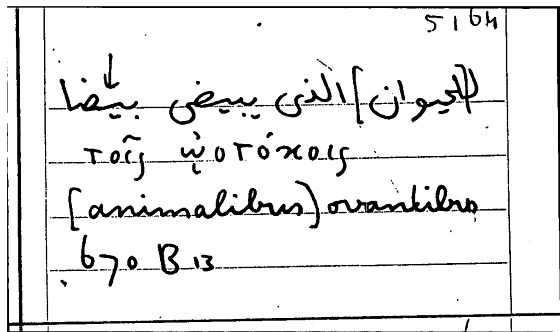 5164
[الحيوان] الذى يبيض بيضا
τοῖς ᾠοτόκοις
[animalibus] ovantibus
670 B 13